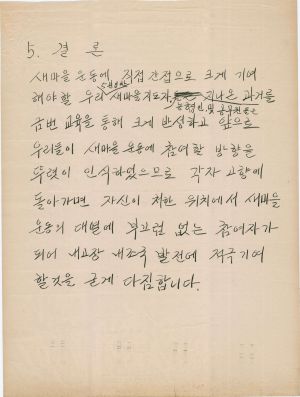 5. 결 론
새마을 운동에 직접 간접으로 크게 기여
해야할 우리 새마을지도자 및 공무원들은 지나온 과거를
금번 교육을 통해 크게 반성하고 앞으로
우리들이 새마을 운동에 참여할 방향을
뚜렷이 인식하였으므로 각자 고향에
돌아가면 자신이 처한 위치에서 새마을
운동의 대열에 부끄럼 없는 참여자가
되어 내고장 내조국 발전에 적극기여
할것을 굳게 다짐합니다.